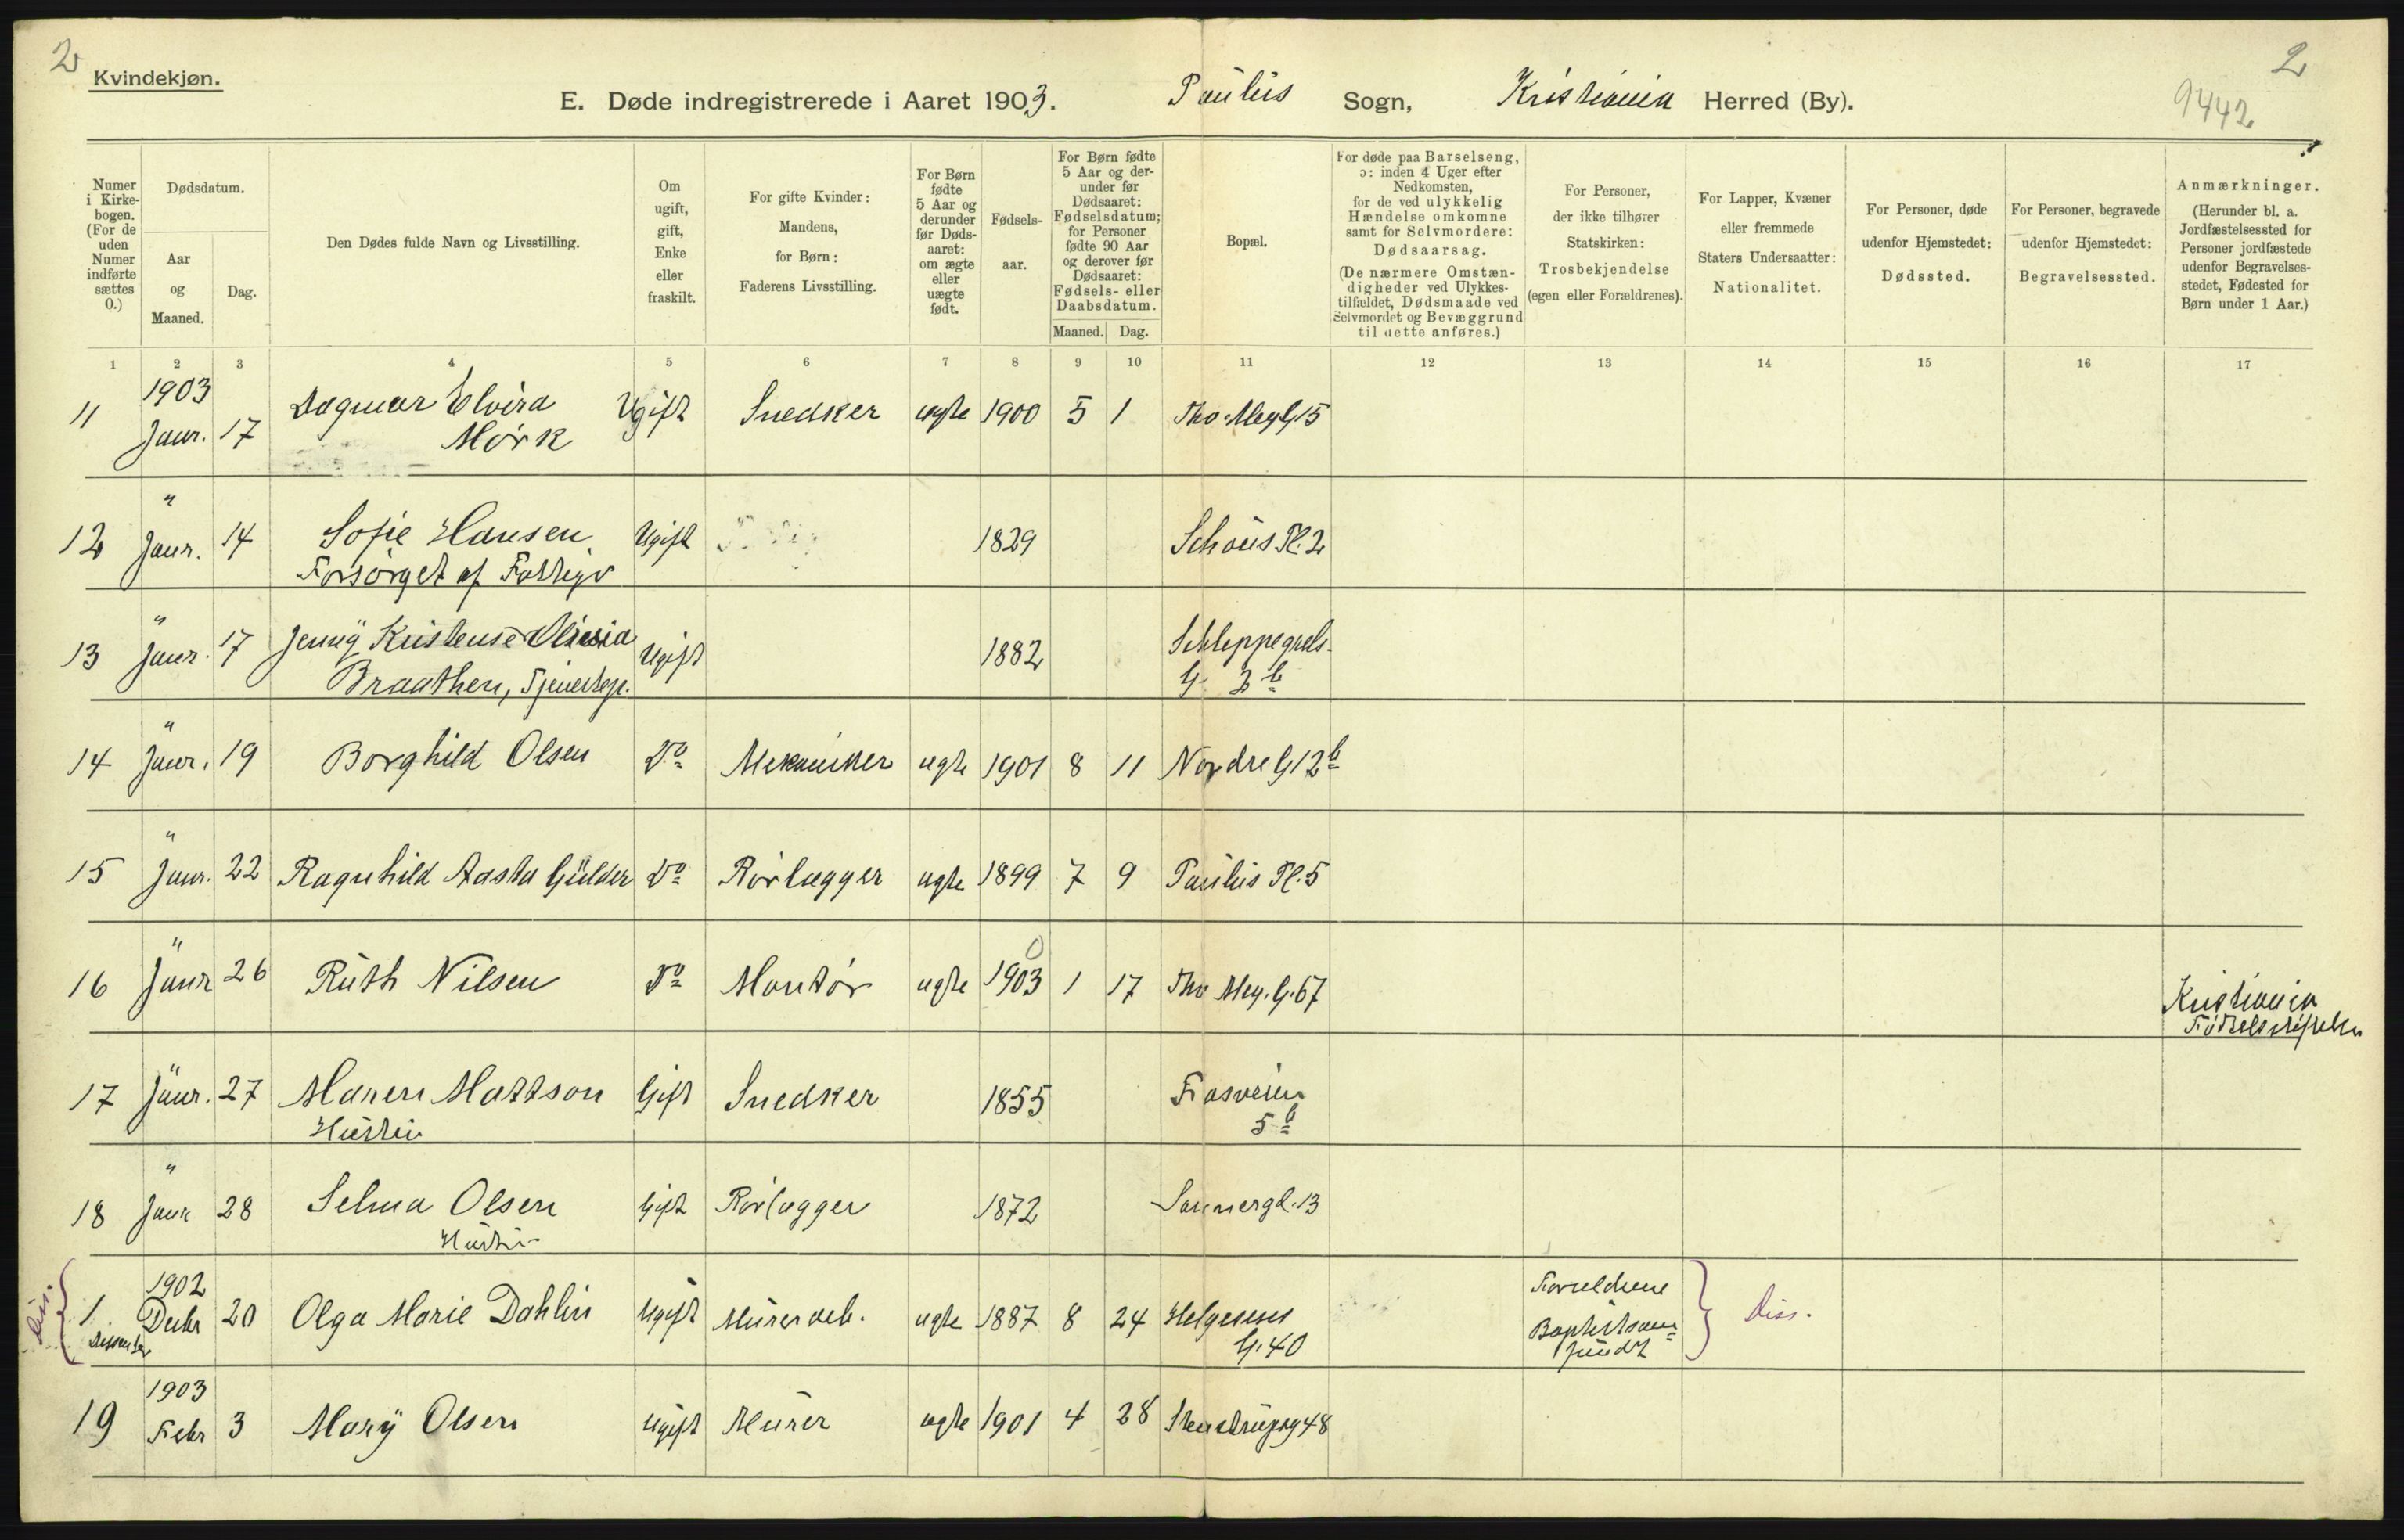 2
Kvindekjøn.
2
E. Døde indregistrerede i Aaret 1903. Paulus Sogn, Kristiania Herred (By).
9442
Numer i Kirke-bogen. (For de uden Numer indførte sættes 0.)
Dødsdatum.
Aar og Maaned.
Dag.
Den Dødes fulde Navn og Livsstilling.
Om ugift, gift, Enke eller fraskilt.
For gifte Kvinder: Mandens, for Børn: Faderens Livsstilling.
For Børn fødte 5 Aar og derunder før Døds-aaret: om ægte eller uægte født.
Fødsels-aar.
For Børn fødte 5 Aar og der-under før Dødsaaret: Fødselsdatum; for Personer fødte 90 Aar og derover før Dødsaaret: Fødsels- eller Daabsdatum.
Maaned. Dag.
Bopæl.
For døde paa Barselseng, ɔ: inden 4 Uger efter Nedkomsten, for de ved ulykkelig Hændelse omkomne samt for Selvmordere: Dødsaarsag. (De nærmere Omstæn-digheder ved Ulykkes-tilfældet, Dødsmaade ved Selvmordet og Bevæggrund til dette anføres.)
For Personer, der ikke tilhører Statskirken: Trosbekjendelse (egen eller Forældrenes).
For Lapper, Kvæner eller fremmede Staters Undersaatter: Nationalitet.
For Personer, døde udenfor Hjemstedet: Dødssted.
For Personer, begravede udenfor Hjemstedet: Begravelsessted.
Anmærkninger. (Herunder bl. a. Jordfæstelsessted for Personer jordfæstede udenfor Begravelses-stedet, Fødested for Børn under 1 Aar.)
1 2 3 4 5 6 7 8 9 10 11 12 13 14 15 16 17
1903
11 Janr. 17 Dagmar Elvira Mörk Ugift Snedker ægte 1900 5 1 Tho. Mey G 15
"
12 Janr. 14 Sofie Hansen Ugift 1829 Schous Pl. 2
Forsörget af Fattigv
"
13 Janr. 17 Jenny Kristense Olivia Ugift 1882 Schleppegrels
Braathen, Tjenestep. G. 3 b
"
14 Janr. 19 Borghild Olsen Do Mekaniker ægte 1901 8 11 Nordre G 12 b
"
15 Janr. 22 Ragnhild Aasta Gulder Do Rörlægger ægte 1899 7 9 Paulus Pl. 5
"
16 Janr 26 Ruth Nilsen Do Montör ægte 1903 0 1 17 Tho Mey. G. 67 Kristiania
Födselsstiftelse
"
17 Janr. 27 Maren Mattson Gift Snedker 1855 Fiosveien
Hustru 5 b
"
18 Janr 28 Selma Olsen Gift Rörlægger 1872 Sannergd. 13
Hustru
Diss.
1902
1 Decbr 20 Olga Marie Dahlin Ugift Murerarb. ægte 1887 8 24 Helgesens G. 40 Forældrene Baptistsam=fundt Diss.
Dissenter
1903
19 Febr 3 Mary Olsen Ugift Murer ægte 1901 4 28 Stenstrupsg 48